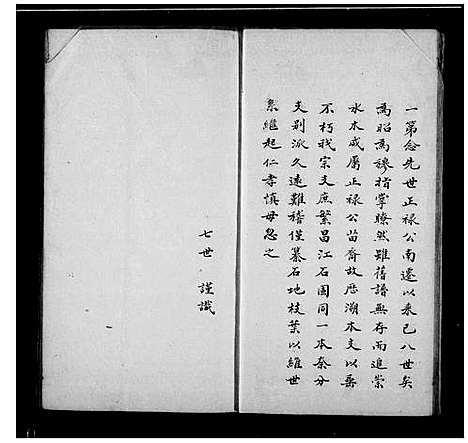 一第念先世正禄公南遷以来已八世矣
為昭為穆指掌瞭然雖舊譜無存而追崇
水木咸屬正禄公苗裔故歴溯本支以垂
不朽我宗支庶繁昌江石園同一本奈分
支别派久遠難稽僅纂石地枝葉以維世
系繼起仁孝慎毋忽之
七世 謹識